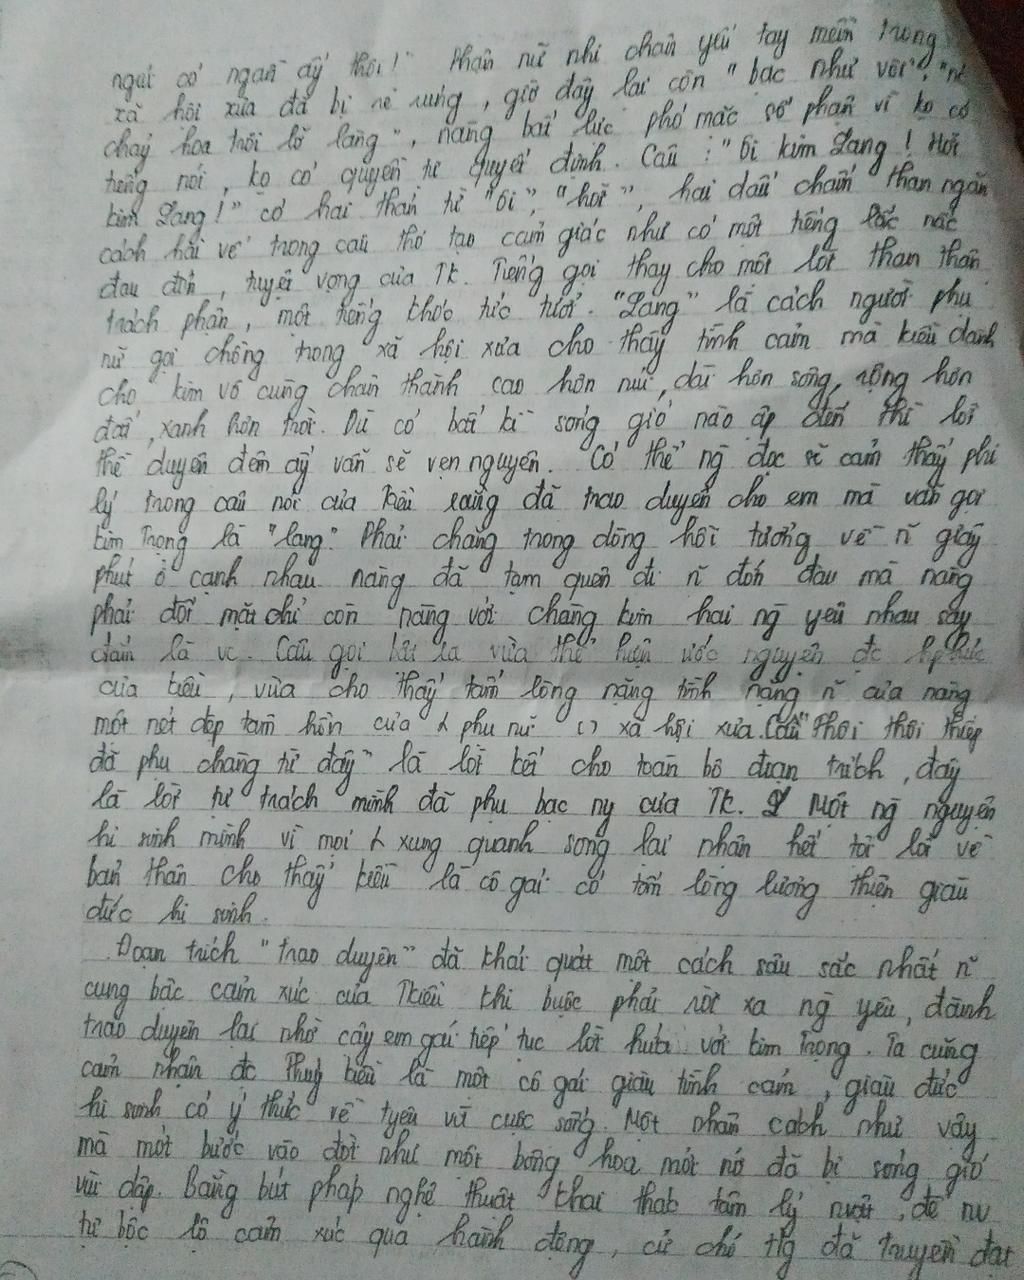 ngui có ngần ấy thôi!" Phận nữ nhi chân yếu tay mềm trong
xã hội xưa đã bị rẻ rúng, giờ đây lại còn "bạc như vôi", "nc
chảy hoa trôi lỡ làng", nàng bất lực phó mặc số phận vì ko có
tiếng nói, ko có quyền tự quyết định. Câu: "Ôi Kim Lang! Hỡi
Kim Lang!" có hai thán từ "ôi", "hỡi", hai dấu chấm than ngăn
cách hai vế trong câu thơ tạo cảm giác như có một tiếng nấc
đau đớn, tuyệt vọng của TK. Tiếng gọi thay cho một lời than thân
trách phận, một tiếng khóc tức tưởi. "Lang" là cách người phụ
nữ gọi chồng trong xã hội xưa cho thấy tình cảm mà Kiều dành
cho Kim vô cùng chân thành cao hơn núi, dài hơn sông, rộng hơn
đất, xanh hơn trời. Dù có bất kì sóng gió nào ập đến thì lời
thề duyên đêm ấy vẫn sẽ vẹn nguyên. Có thể ng đọc sẽ cảm thấy phi
lý trong câu nói của Kiều rằng đã trao duyên cho em mà vẫn gọi
Kim Trọng là "lang". Phải chăng trong dòng hồi tưởng về n~ giây
phút ở cạnh nhau nàng đã tạm quên đi n~ đớn đau mà nàng
phải đối mặt chỉ còn nàng với chàng Kim hai ng yêu nhau say
đắm là vc. Câu gọi bật ra vừa thể hiện ước nguyện đc hp
của Kiều, vừa cho thấy tấm lòng nặng tình nặng n~ của nàng
một nét đẹp tâm hồn của ⅄ phụ nữ () xã hội xưa. Câu "Thôi thôi thiếp
đã phụ chàng từ đây" là lời kết cho toàn bộ đoạn trích, đây
là lời tự trách mình đã phụ bạc ny của TK. Một ng nguyện
hi sinh mình vì mọi ⅄ xung quanh song lại nhận hết tội lỗi về
bản thân cho thấy Kiều là cô gái có tấm lòng lương thiện giàu
đức hi sinh.
Đoạn trích "Trao duyên" đã khái quát một cách sâu sắc nhất n~
cung bậc cảm xúc của Kiều khi buộc phải rời xa ng yêu, đành
trao duyên lại nhờ cậy em gái tiếp tục lời hứa với Kim Trọng. Ta cũng
cảm nhận đc Thuý Kiều là một cô gái giàu tình cảm, giàu đức
hi sinh có ý thức về tyêu và cuộc sống. Một nhân cách như vậy
mà mới bước vào đời như một bông hoa mới nở đã bị sóng gió
vùi dập. Bằng bút pháp nghệ thuật khai thác tâm lý nvật, để nv
tự bộc lộ cảm xúc qua hành động, cử chỉ tg đã truyền đạt